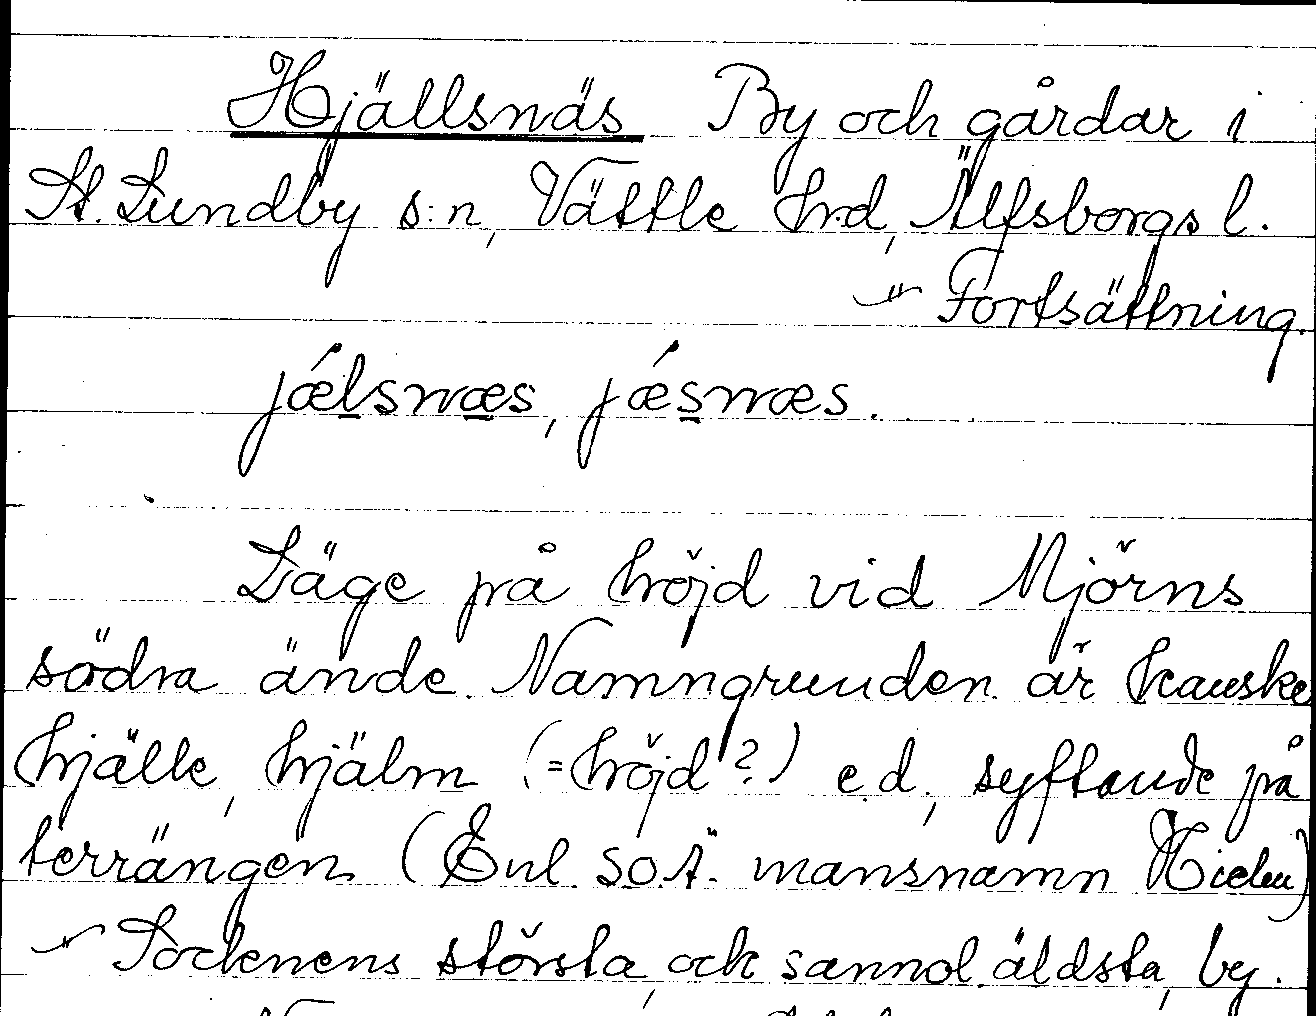 Hjällsnäs By och gårdar i
St. Lundby s:n, Vättle hrd, Älfsborgs l.
~"~ Fortsättning.
jǽlsnæs, jǽsnæs.
Läge på höjd vid Mjörns
södra ände. Namngrunden är kanske
hjälle, hjälm (=höjd?) e.d., syftande på
terrängen. (Enl. SOÄ. mansnamn
~"~ Sockenens största, och sannol. äldsta, by.